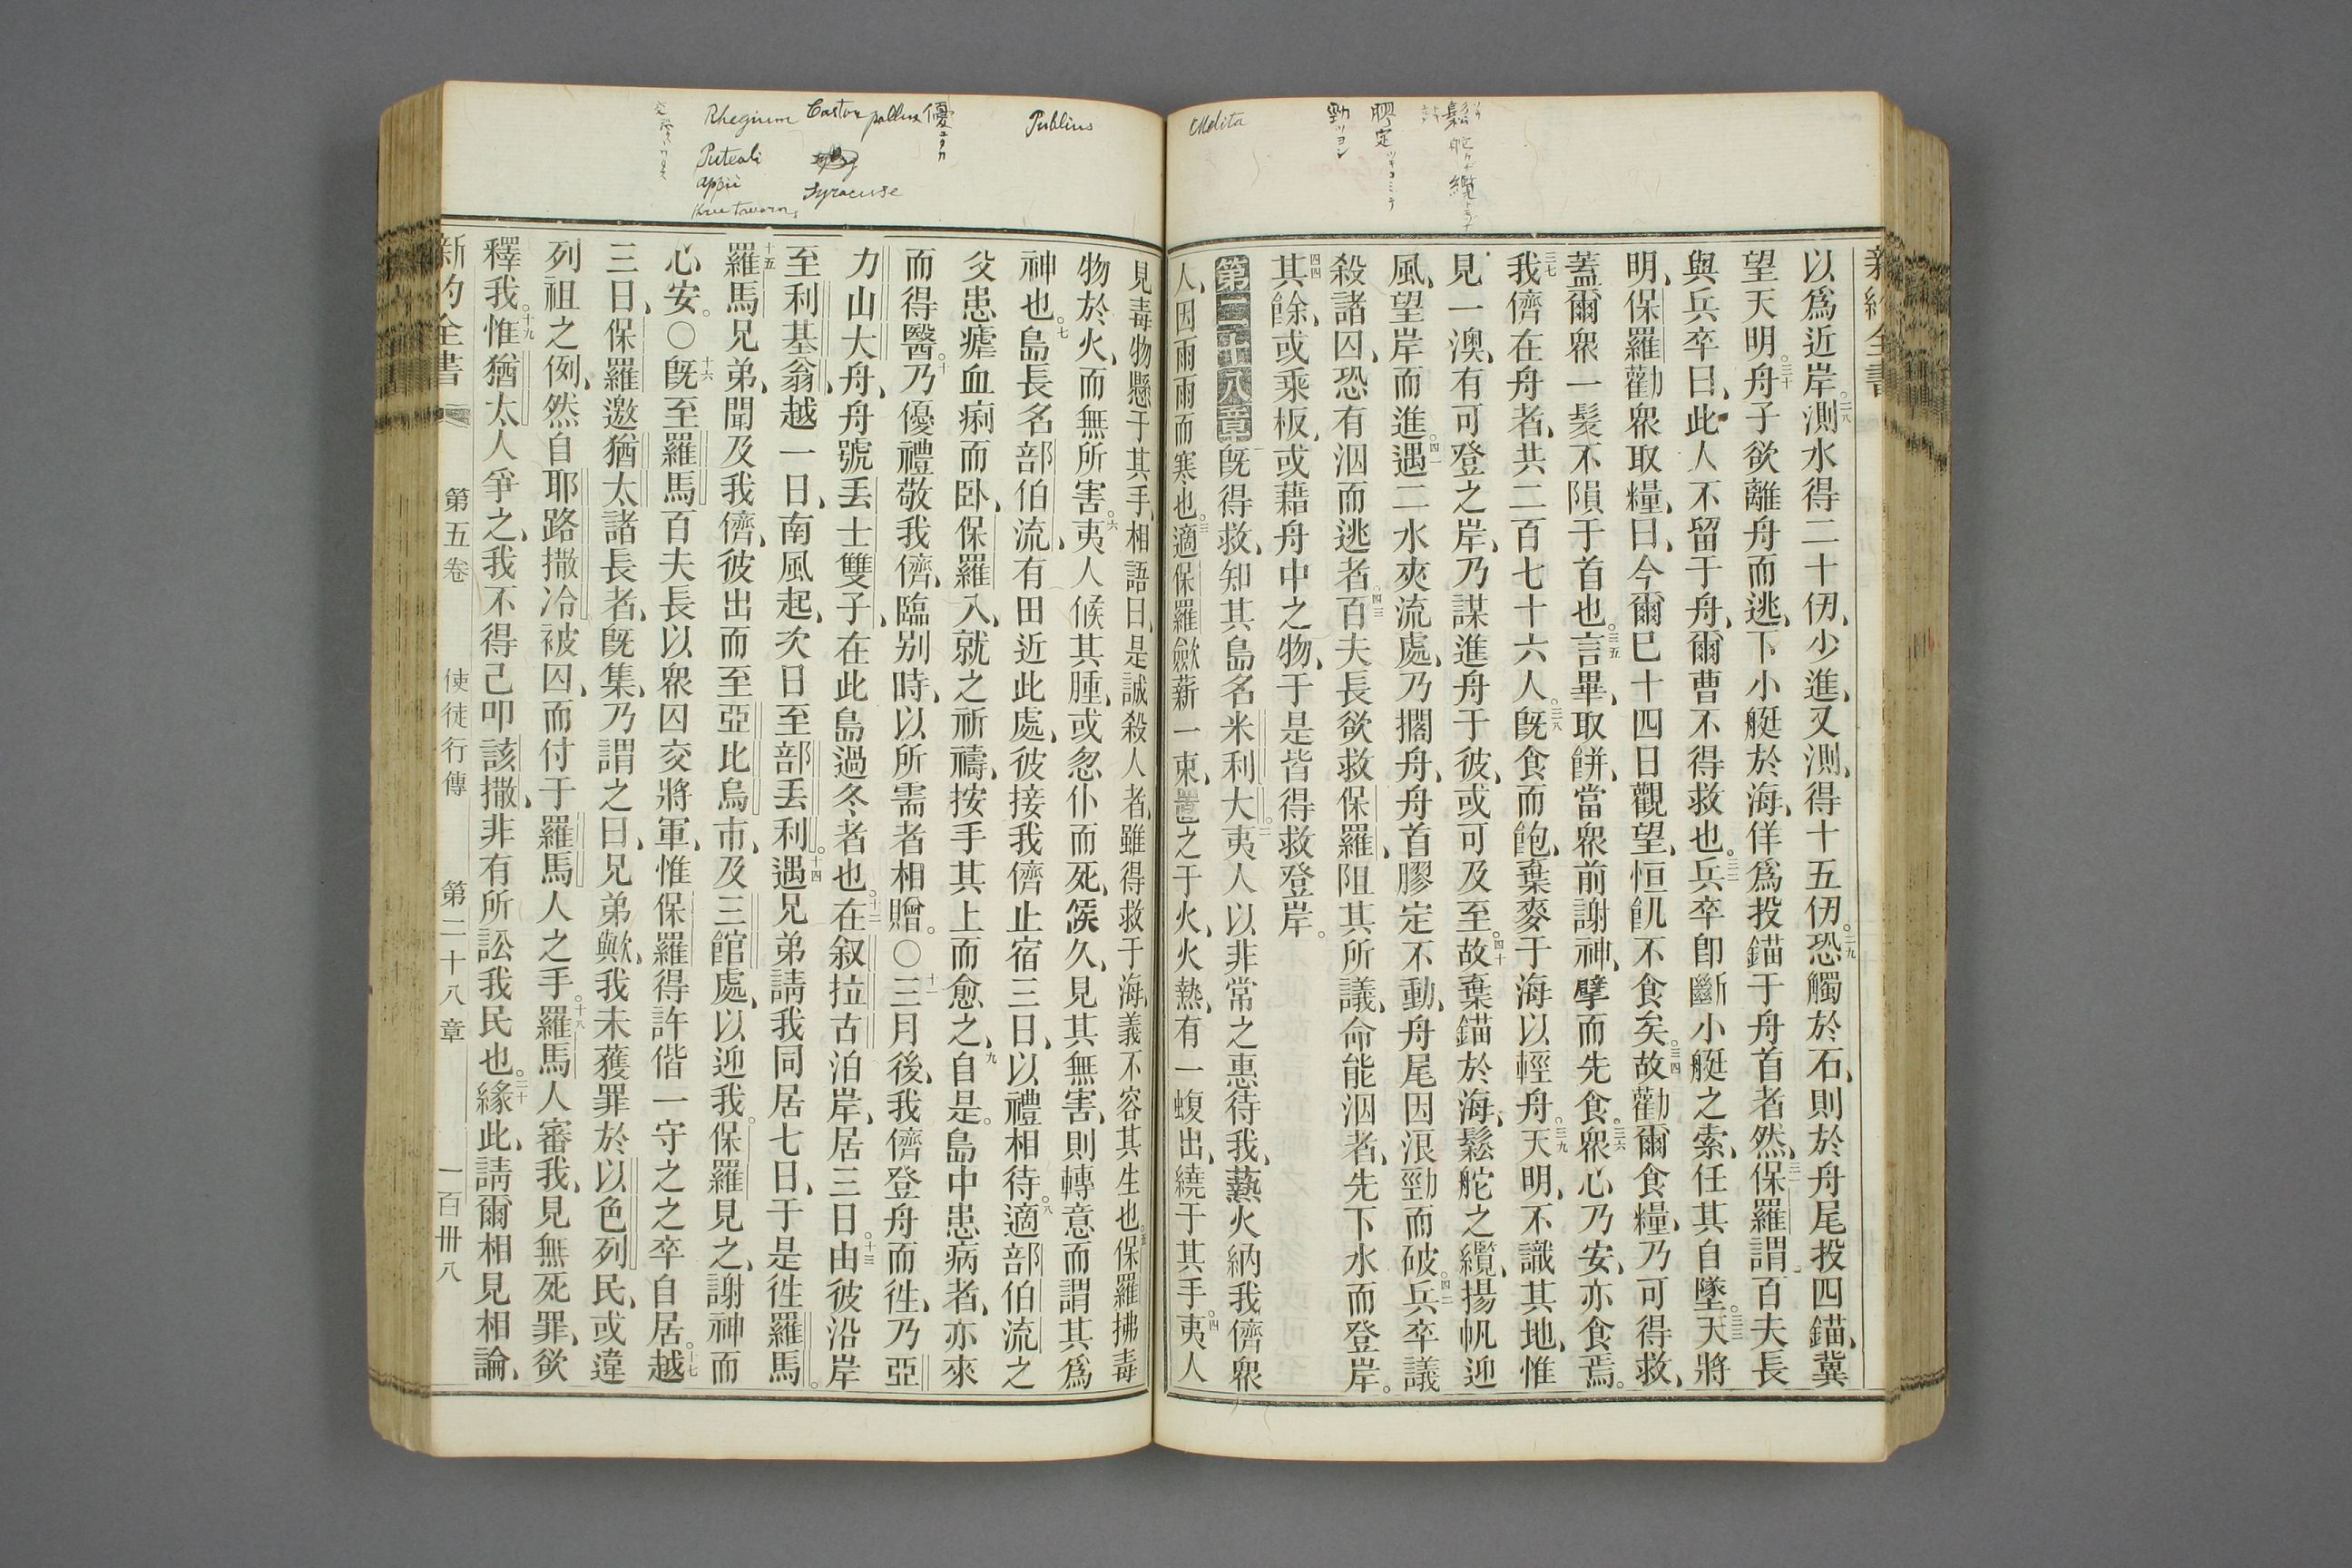 鬆 舵 纜
膠定
勁ツヨシ
Melita
新約全書
以爲近岸。二八測水得二十仞、少進、又測、得十五仞。二九恐觸於石、則於舟尾投四錨、冀
望天明。三十舟子欲離舟而逃、下小艇於海、佯爲投錨于舟首者然、三一保羅謂百夫長
與兵卒曰、此人不留于舟、爾曹不得救也。三二兵卒卽斷小艇之索、任其自墜。三三天將
明、保羅勸衆取糧、曰、今爾巳十四日觀望、恒飢不食矣。三四故勸爾食糧、乃可得救、
蓋爾衆一髮不隕于首也。三五言畢、取餅、當衆前謝神、擘而先食。三六衆心乃安、亦食焉。
三七我儕在舟者、共二百七十六人。三八旣食而飽、棄麥于海以輕舟。三九天明、不識其地、惟
見一澳、有可登之岸、乃謀進舟于彼、或可及至。四十故棄錨於海、鬆舵之纜、揚帆迎
風、望岸而進。四一遇二水夾流處、乃擱舟、舟首膠定不動、舟尾因浪勁而破。四二兵卒議
殺諸囚、恐有泅而逃者。四三百夫長欲救保羅、阻其所議、命能泅者、先下水而登岸。
四四其餘、或乘板、或藉舟中之物、于是皆得救登岸。
第二十八章 一旣得救、知其島名米利大。二夷人以非常之惠待我、爇火納我儕衆
人、因雨雨而寒也。三適保羅歛薪一束、置之于火、火熱、有一蝮出、繞于其手。四夷人
Publius
優ユタカ
Castor pollux
Syracuse
Rhegium
Puteoli
appii
three taverns
見毒物懸于其手、相語曰、是誠殺人者、雖得救于海、義不容其生也。五保羅拂毒
物於火、而無所害。六夷人候其腫、或忽仆而死、矦久、見其無害、則轉意而謂其爲
神也。七島長名部伯流、有田近此處、彼接我儕止宿三日、以禮相待。八適部伯流之
父患瘧血痢而卧、保羅入、就之祈禱、按手其上而愈之、九自是。島中患病者、亦來
而得醫。十乃優禮敬我儕、臨别時、以所需者相贈。〇十一三月後、我儕登舟而徃、乃亞
力山大舟、舟號丢士雙子、在此島過冬者也。十二在叙拉古泊岸、居三日。十三由彼沿岸
至利基翁、越一日、南風起、次日至部丢利。十四遇兄弟請我同居七日、于是徃羅馬。
十五羅馬兄弟、聞及我儕、彼出而至亞比烏市、及三館處、以迎我。保羅見之、謝神而
心安。〇十六旣至羅馬百夫長以衆囚交將軍、惟保羅得許偕一守之之卒自居。十七越
三日、保羅邀猶太諸長者、旣集、乃謂之曰、兄弟歟、我未獲罪於以色列民、或違
列祖之例、然自耶路撒冷被囚、而付于羅馬人之手。十八羅馬人審我、見無死罪、欲
釋我。十九惟猶太人爭之、我不得己叩該撒、非有所訟我民也。二十緣此、請爾相見相論、
新約全書 第五卷 使徒行傳 第二十八章 一百卌八